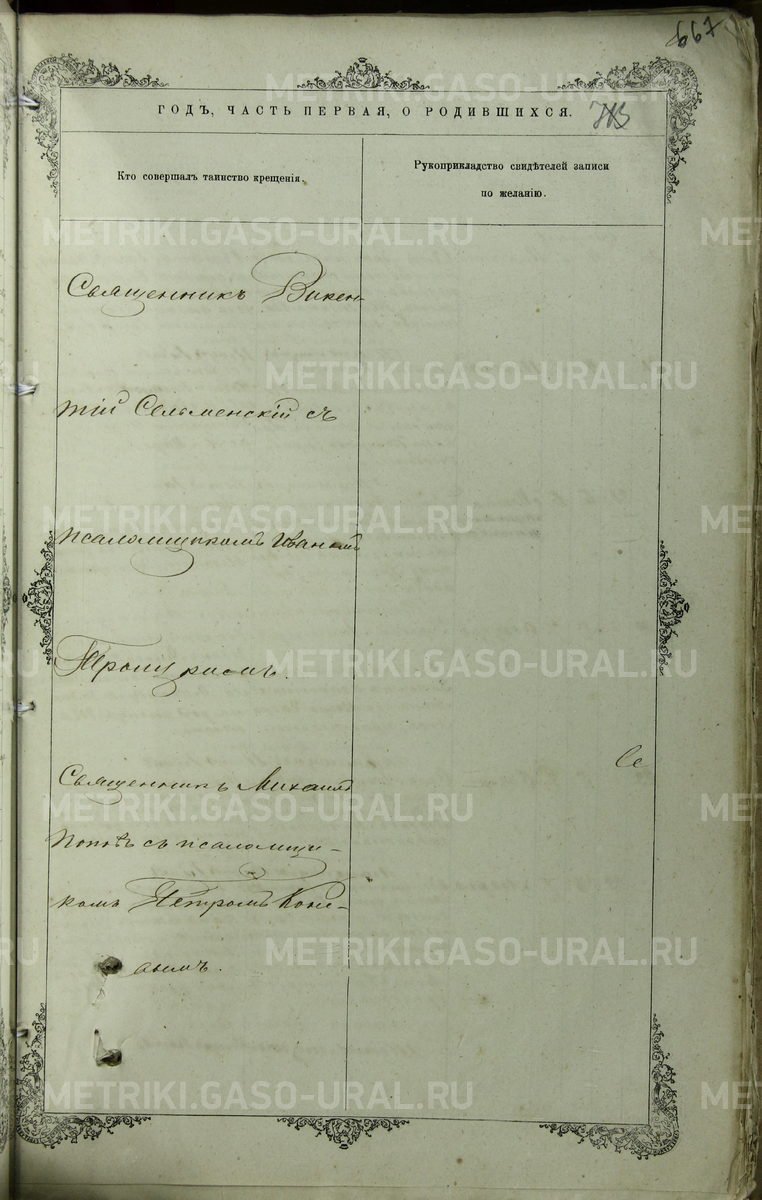 667
ГОДЪ, ЧАСТЬ ПЕРВАЯ, О РОДИВШИХСЯ.
Кто совершалъ таинство крещенія.
Рукоприкладство свидѣтелей записи
по желанію.
Священникъ Викен-
тій Сельменскій съ
псаломщикомъ Иваномъ
Священникъ Михаилъ
Поповъ съ псаломщи-
комъ Петромъ Коне-
вымъ.
METRIKI.GASO-URAL.RU